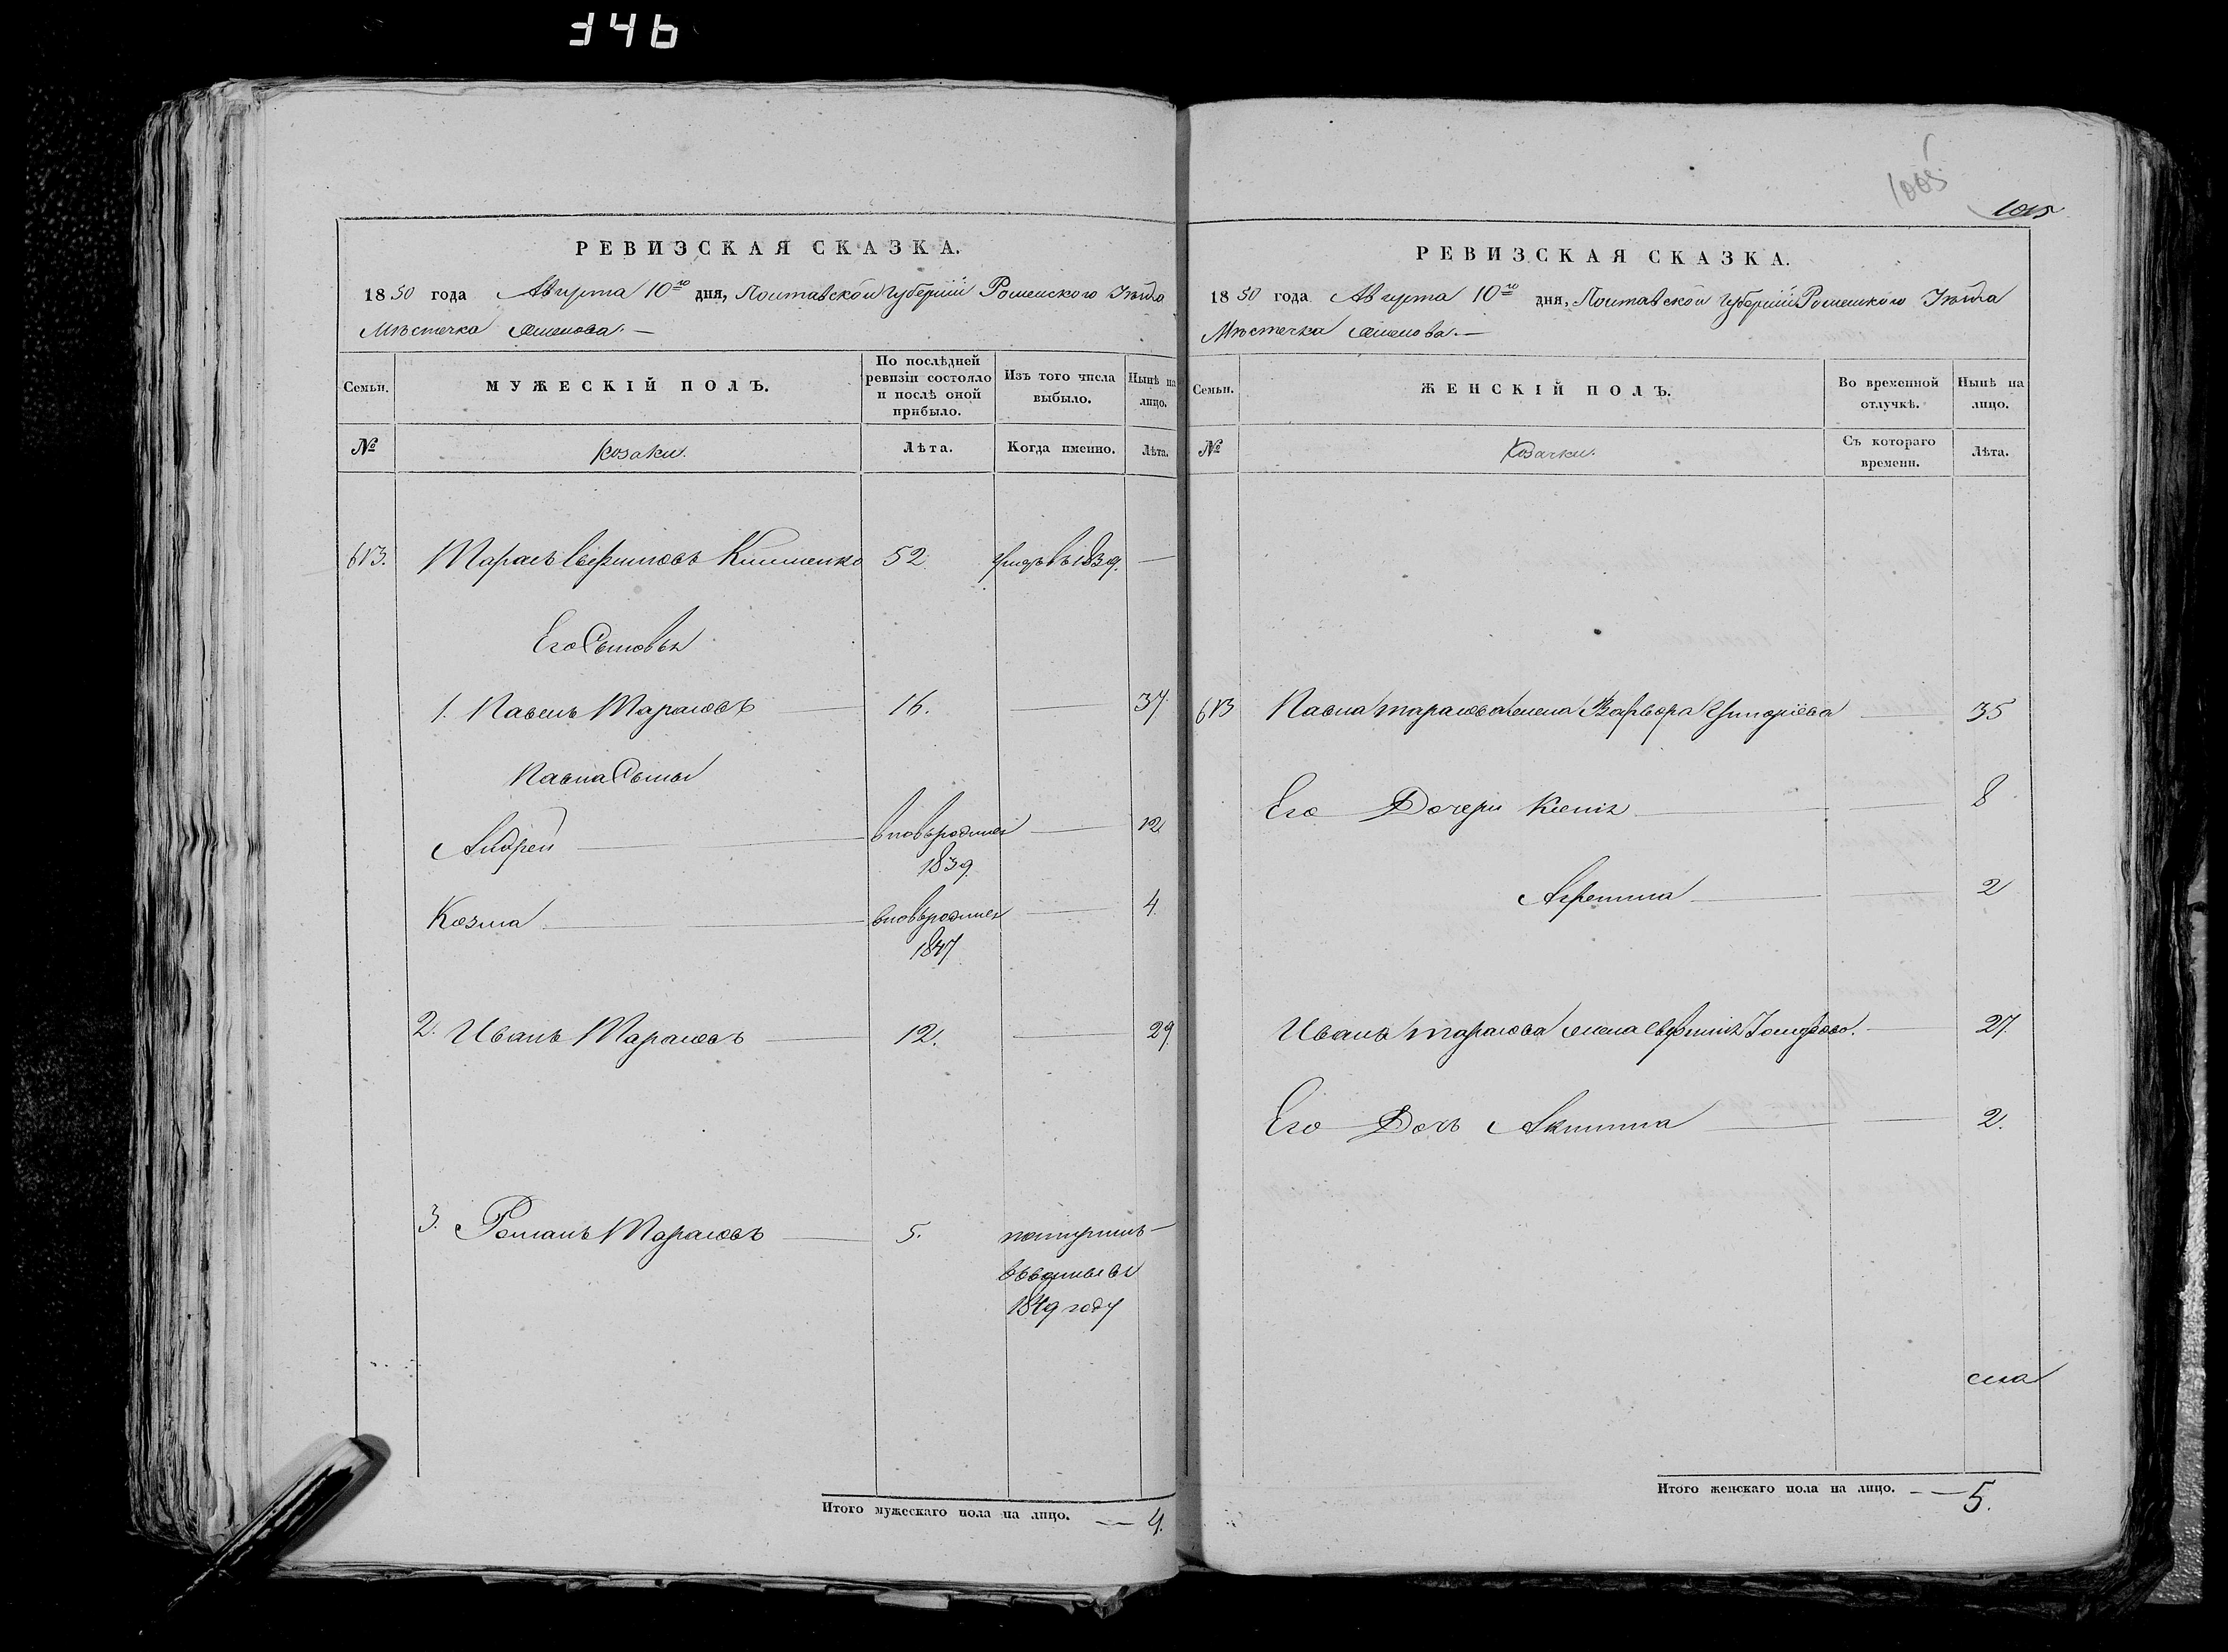 346
1005
1015
РЕВИЗСКАЯ СКАЗКА.
1850 года Августа 10го дня, Полтавской Губерніи Роменского Уѣзда
Мѣстечка Смелова.
Семьи. МУЖЕСКІЙ ПОЛЪ. По послѣдней ревизіи состояло и послѣ оной прибыло. Изъ того числа выбыло. Нынѣ на лицо.
№ Козаки. Лѣта. Когда именно. Лѣта.
613. Тарасъ Евфимовъ 52 умеръ въ 1839. —
Его Сыновья
1. Павелъ Тарасовъ 16. — 37.
Павла Сыны
Андрей вновьрожден — 12
1839
Козма вновьрожден — 4.
1847
2. Иванъ Тарасовъ 12. — 29
3. Романъ Тарасовъ 5. —
1849 году
Итого мужескаго пола на лицо. — 4.
РЕВИЗСКАЯ СКАЗКА.
1850 года Августа 10го дня, Полтавской Губерніи Роменского Уѣзда
Мѣстечка Смелова.
Семьи. ЖЕНСКІЙ ПОЛЪ. Во временной отлучкѣ. Нынѣ на лицо.
№ Козачки. Съ котораго времени. Лѣта.
613 Павла Тарасова жена Варвара Григоріева — 35
Его Дочери — 8
— 2
Ивана Тарасова жена Евфимія — 27.
Его Дочь Акилина — 2.
Итого женскаго пола на лицо. — 5.